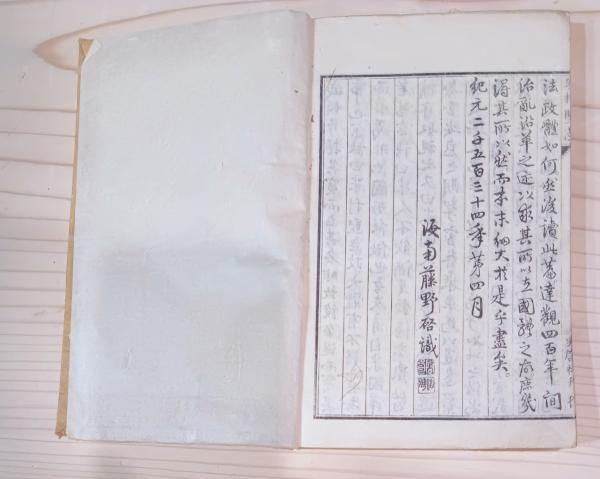 法政體如何然後讀此篇達觀四百年間
治亂沿革之迹以求其所以立國體之故庶幾
得其所以然而本末細大於是乎盡矣。
紀元二千五百三十四季第四月
海南藤野啓識